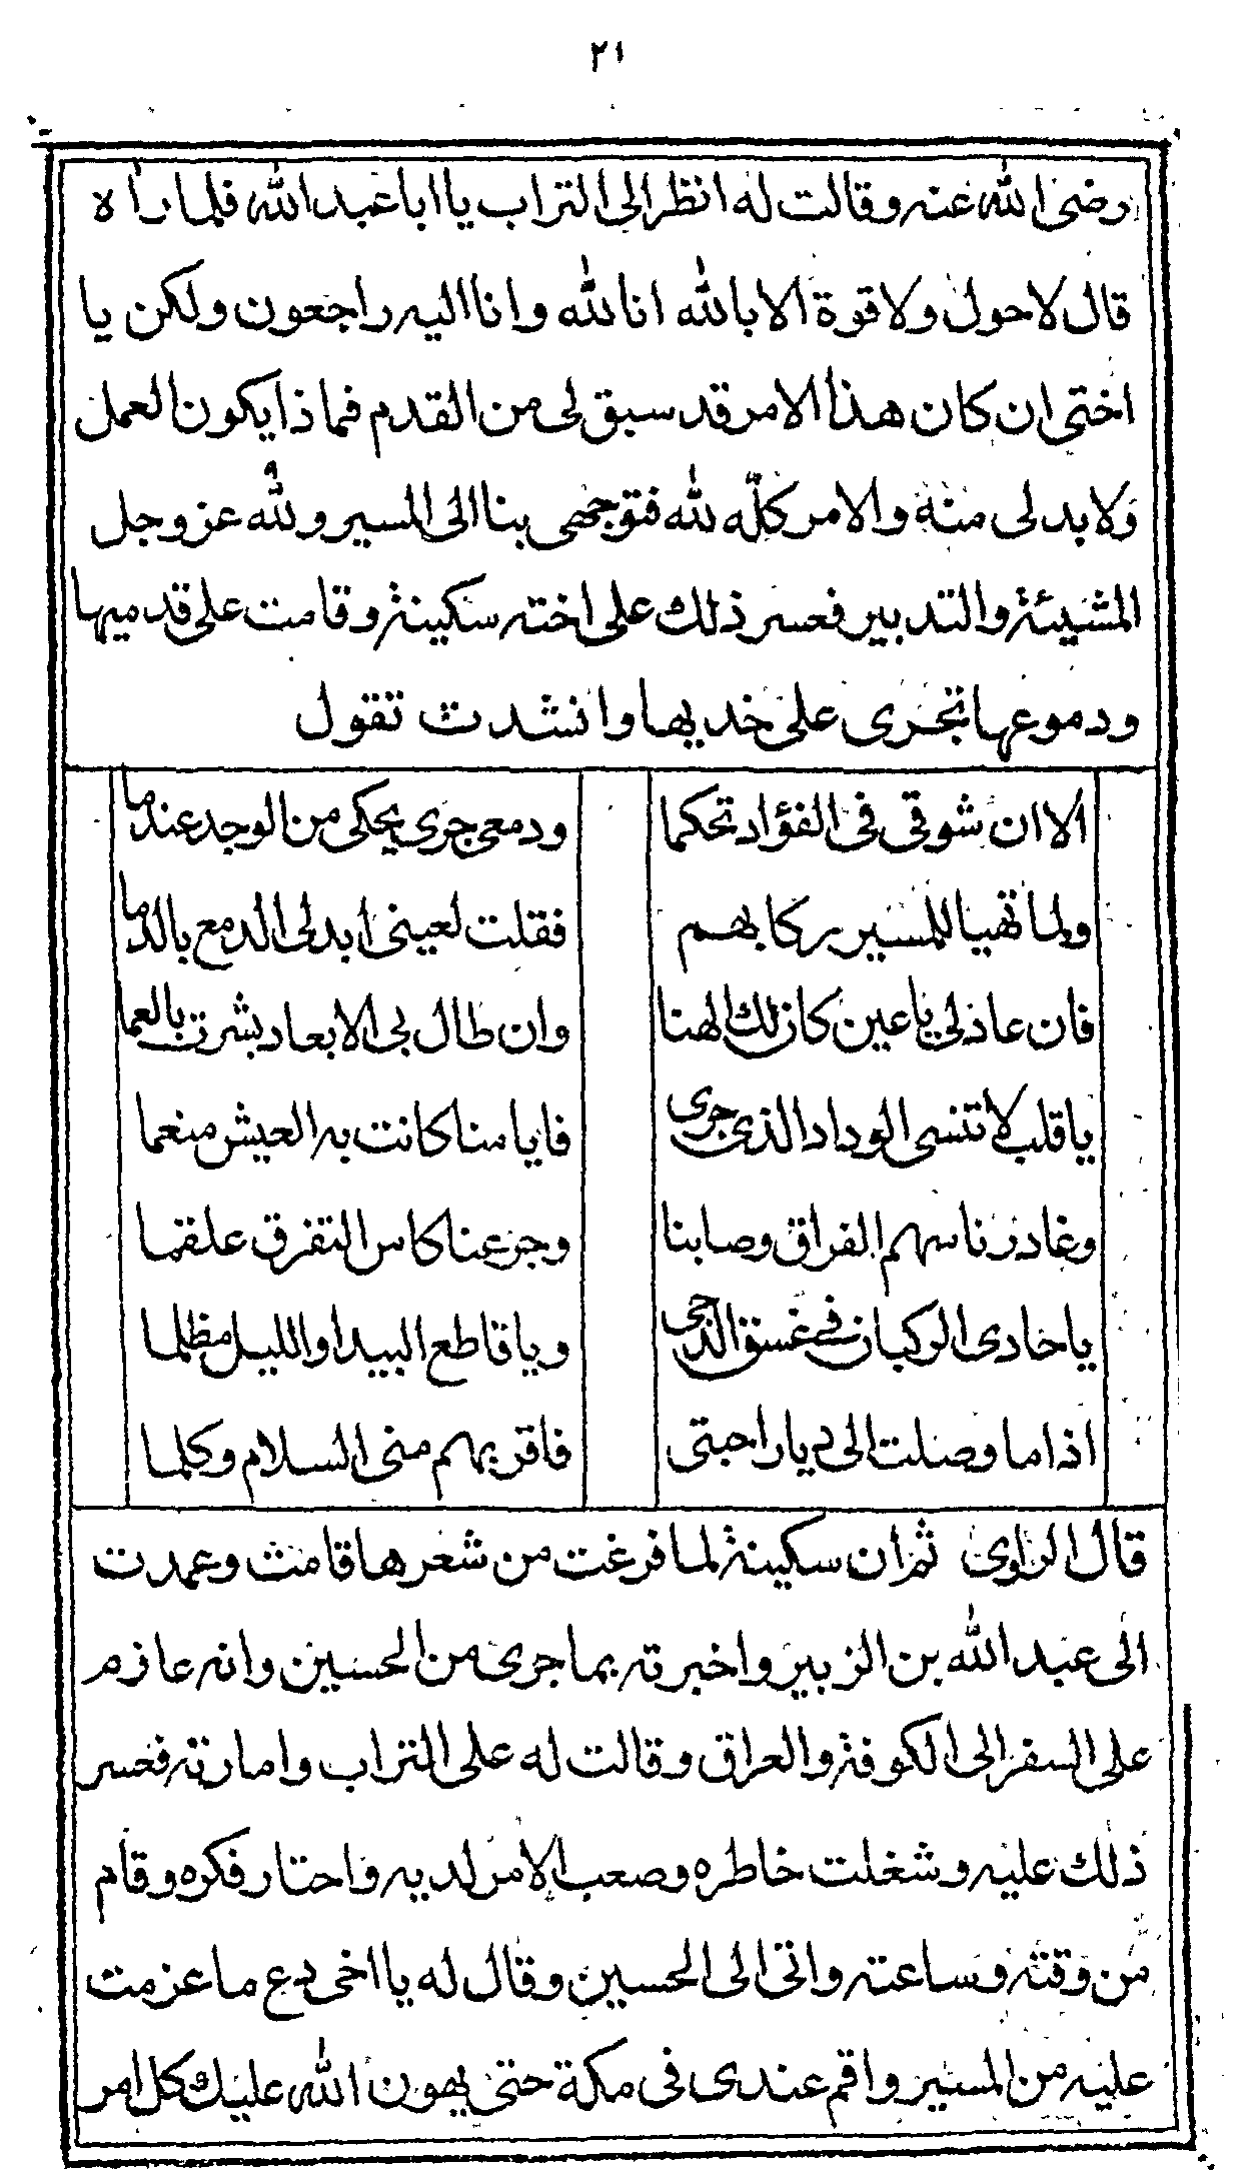 ٢١
رضى الله عنه وقالت له انظر الى التراب يا ابا عبد الله فلما راه
قال لا حول ولا قوة الا بالله انا لله وانا اليه راجعون ولكن يا
اختى ان كان هذا الامر قد سبق لى من القدم فما ذا يكون العمل
ولا بد لى منه والامر كلّه لله فتوجهى بنا الى المسير ولله عز وجل
المشيئة والتدبير فعسر ذلك على اخته سكينة وقامت على قدميها
ودموعها تجرى على خديها وانشدت تقول
الا ان شوقى فى الفؤاد تحكما ودمعى جرى يحكى من الوجد عندما
ولما تهيا للمسير ركابهم فقلت لعينى ابدلى الدمع بالدما
فان عاذلى يا عين كان لك الهنا وان طال بى الابعاد بشرت بالعما
يا قلب لا تنسى الوداد الذى جرى فايامنا كانت به العيش منعما
وغادرنا سهم الفراق وصابنا وجرعنا كاس التفرق علقما
يا حادى الركبان فى غسق الدجى ويا قاطع البيدا والليل مظلما
اذا ما وصلت الى ديار احبتى فاقربهم منى السلام وكلما
قال الراوى ثم ان سكينة لما فرغت من شعرها قامت وعمدت
الى عبد الله بن الزبير واخبرته بما جرى من الحسين وانه عازم
على السفر الى الكوفة والعراق وقالت له على التراب وامارته فعسر
ذلك عليه وشغلت خاطره وصعب الامر لديه واحتار فكره وقام
من وقته وساعته واتى الى الحسين وقال له يا اخى دع ما عزمت
عليه من المسير واقم عندى فى مكة حتى يهون الله عليك كل امر